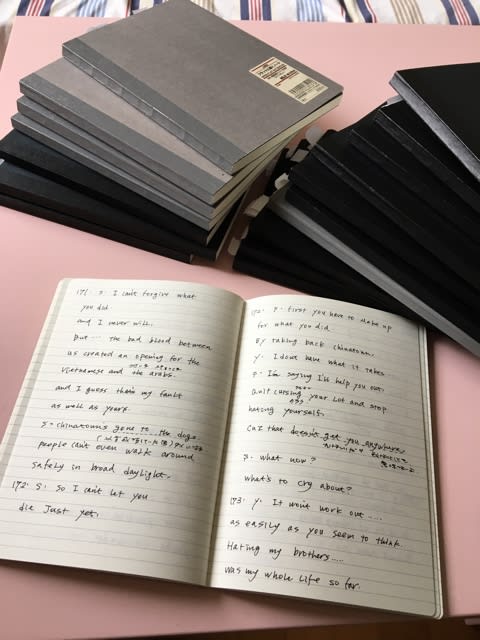 171. S: I can't forgive what
you did
and I never will.
But… the bad blood between
us created an opening for the
vietnamese and the arabs.
and I guess that's my fault
as well as yours.
S = chinatowns gone to the dogs.
people can't even walk around
safely in broad daylight.
172. S: So I can't let you
die Just yet.
172. S. first you have to make up
for what you did
By taking back chinatown.
Y. I dont have what it takes
S. I'm saying I'll help you out.
Quit cursing your lot and stop
hating yourself.
Cuz that doesn't get you anywhere
S. what now?
what's to cry about?
173. Y. It wont work out....
as easily as you seem to think
Hating my brothers.....
was my whole life so far.